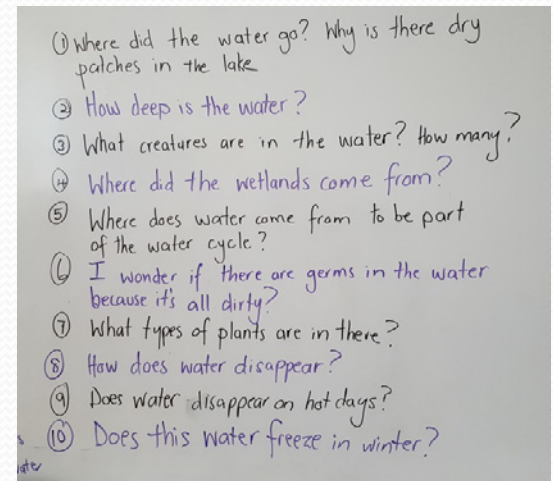 ① Where did the water go? Why is there dry
patches in the lake
② How deep is the water?
③ What creatures are in the water? How many?
④ Where did the wetlands come from?
⑤ Where does water come from to be part
of the water cycle?
⑥ I wonder if there are germs in the water
because it's all dirty?
⑦ What types of plants are in there?
⑧ How does water disappear?
⑨ Does water disappear on hot days?
⑩ Does this water freeze in winter?